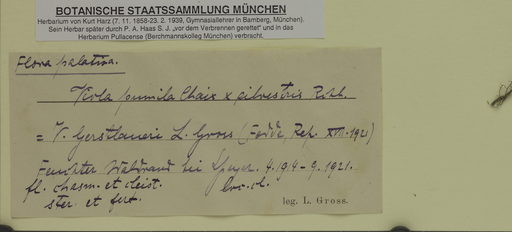 BOTANISCHE STAATSSAMMLUNG MÜNCHEN
Herbarium von Kurt Harz (7. 11. 1858-23. 2. 1939, Gymnasiallehrer in Bamberg, München).
Sein Herbar später durch P. A. Haas S. J. „vor dem Verbrennen gerettet" und in das
Herbarium Pullacense (Berchmanskolleg München) verbracht.
Flora palatina.
Viola pumila Chaix x silvestris Rchb.
= V. Gerstlaueri L. Gross (Fedde, Rep. XVII. 1921)
Feuchter Waldrand bei Speyer. 4. 1914 - 9. 1921.
fl. chasm. et cleist. loc. cl.
ster. et fert.
leg. L. Gross.